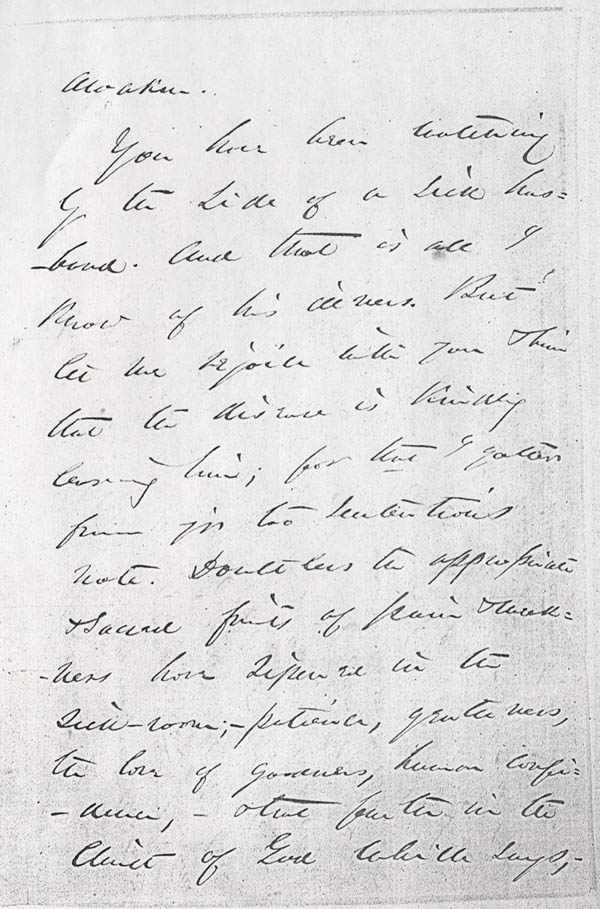 awaken.
You have been watching
by the side of a sick hus=
-band. And that is all I
know of his illness. But
let me rejoice with you & him
that the disease is kindly
leaving him; for that I gather
from yr too sententious
note. Doubtless the appropriate
& sacred fruits of pain & weak-
-ness have ripened in the
sick-room;- patience, gentleness,
the love of goodness, human confi=
-dence, - & that faith in the
Christ of God which says,-